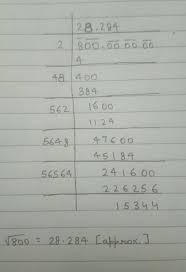 28.284
2 800.00 00 00
4
48 400
384
562 1600
1124
5648 47600
45184
56564 241600
226256
15344
√800 = 28.284 [approx.]